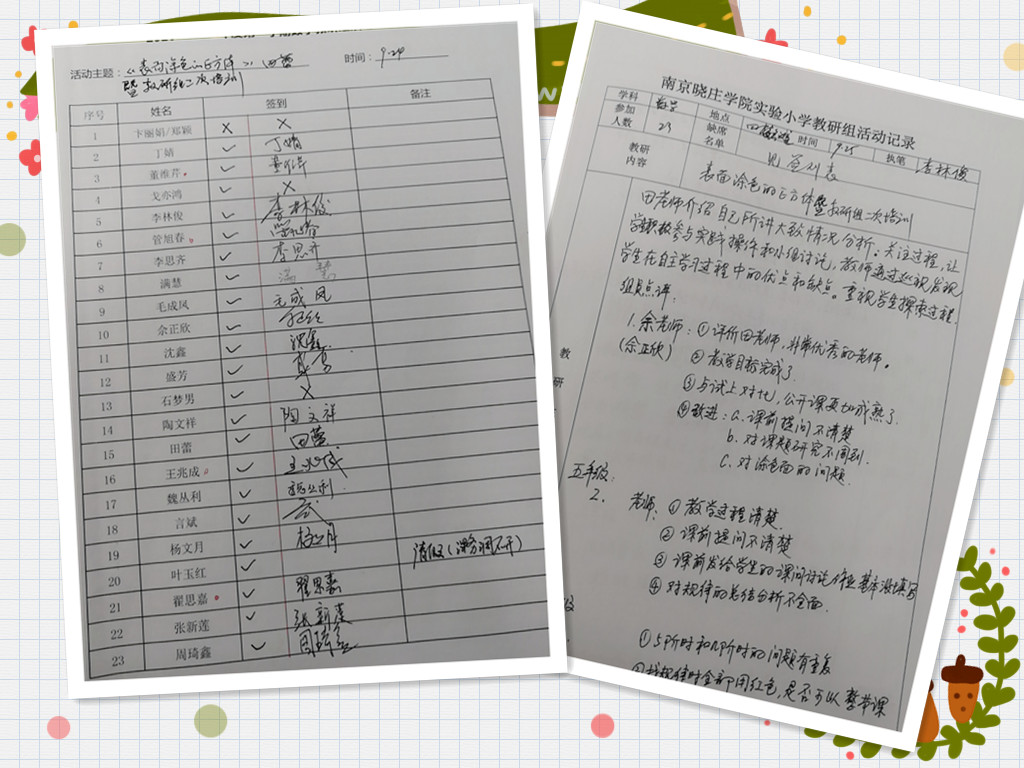 活动主题：《表面涂色的正方体》田蕾
暨教研组二次培训
时间：9.24
序号 姓名 签到 备注
1 卞丽娟/郑颖 × ×
2 丁婧 ✓ 丁婧
3 董维芹 ✓ 董维芹
4 戈亦鸿 ×
5 李林俊 ✓ 李林俊
6 管旭春 ✓ 管旭春
7 李思齐 ✓ 李思齐
8 满慧 ✓ 满慧
9 毛成凤 ✓ 毛成凤
10 余正欣 ✓
11 沈鑫 ✓ 沈鑫
12 盛芳 ✓ 盛芳
13 石梦男 ✓ ×
14 陶文祥 ✓ 陶文祥
15 田蕾 ✓ 田蕾
16 王兆成 ✓ 王兆成
17 魏丛利 ✓ 魏丛利
18 言斌 ✓
19 杨文月 ✓ 杨文月
20 叶玉红 ✓ 请假(课务调不开)
21 翟思嘉 ✓ 翟思嘉
22 张新莲 ✓ 张新莲
23 周琦鑫 ✓ 周琦鑫
南京晓庄学院实验小学教研组活动记录
学科 数学 地点 时间 9.25 执笔 李林俊
参加人数 23 缺席名单 见签到表
教研内容 表面涂色的正方体暨教研组二次培训
教
研
田老师介绍自己所讲大致情况分析：关注过程，让
学生积极参与实践操作和小组讨论，教师通过巡视发现
学生在自主学习过程中的优点和缺点。重视学生探索过程.
组员点评：
1.余老师：①评价田老师，非常优秀的老师。
(余正欣) ②教学目标完成了.
③与试上对比，公开课更加成熟了.
④改进：a.课前提问不清楚
b.对课题研究不周到.
c.对涂色面的问题.
五年级：
2. 老师：①教学过程清楚.
②课前提问不清楚
③课前发给学生的课间讨论作业基本没填写
④对规律的总结分析不全面.
①5阶时和n阶时的问题有重复
②找规律时全部用红色，是否可以整节课